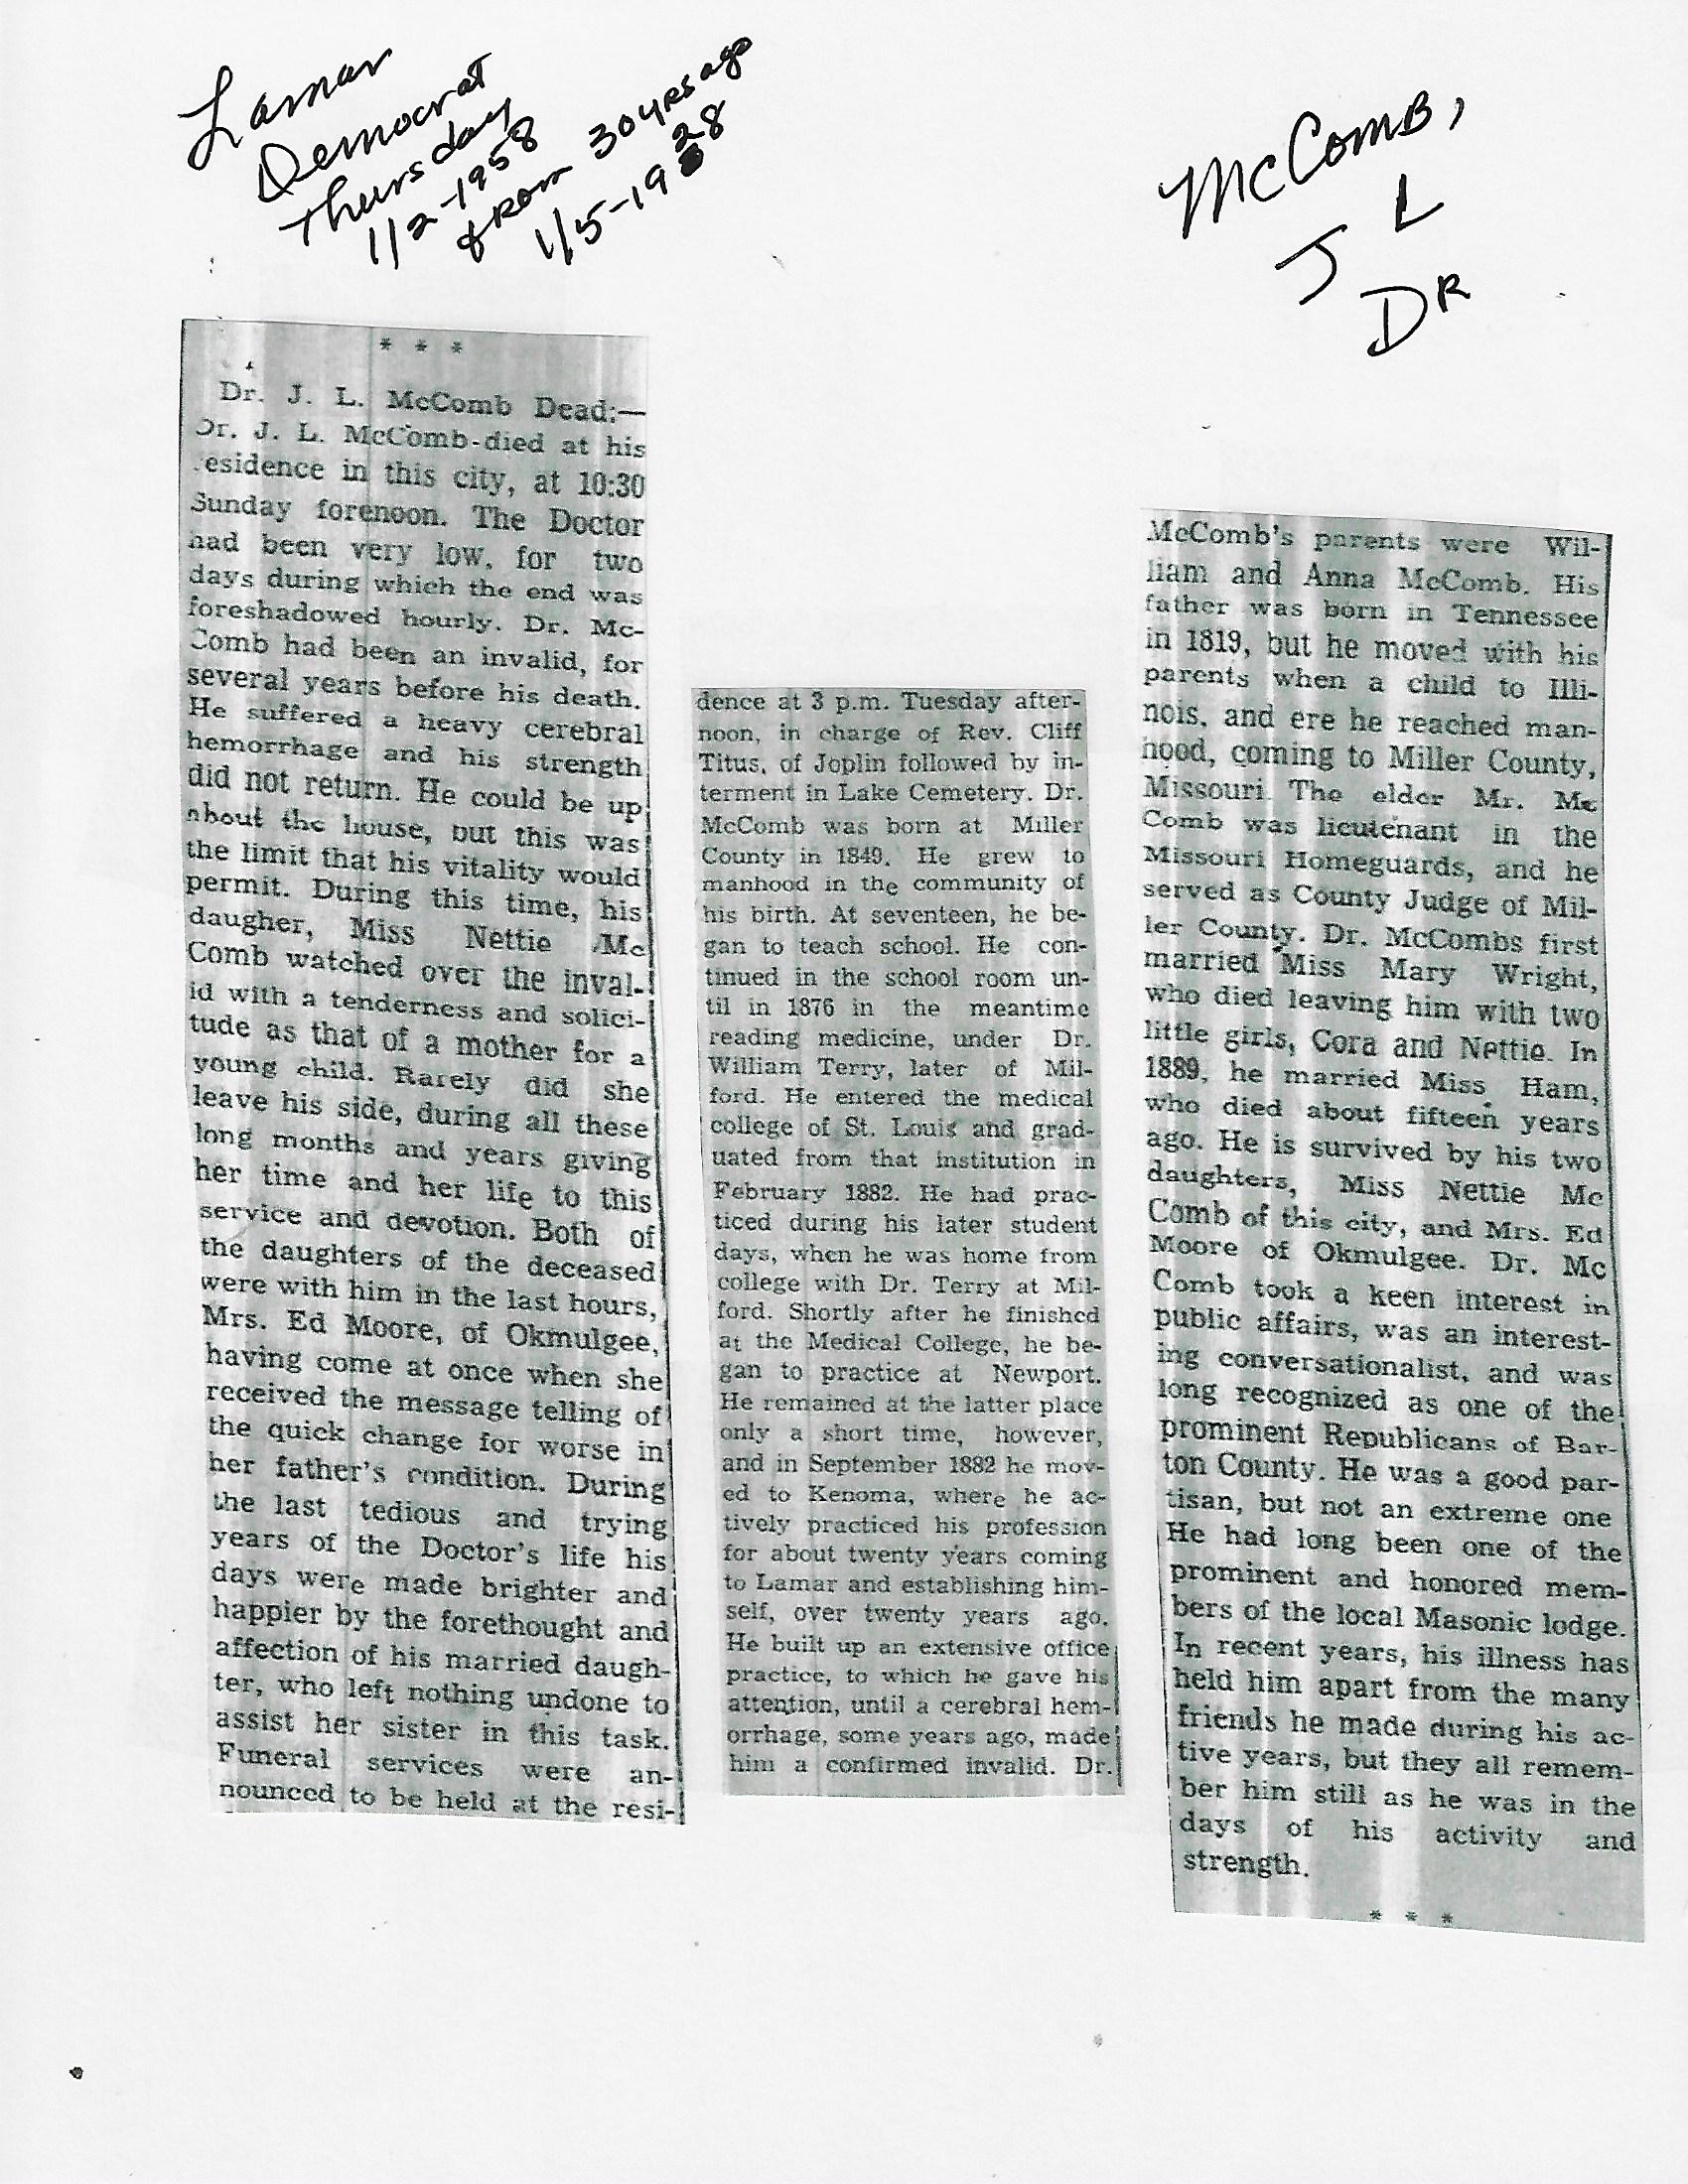 Lamar
Democrat
Thursday
1/2-1958
from 30 yrs ago
1/5-1928
McComb,
J L
DR
* * *
Dr. J. L. McComb Dead:—
Dr. J. L. McComb-died at his
residence in this city, at 10:30
Sunday forenoon. The Doctor
had been very low, for two
days during which the end was
foreshadowed hourly. Dr. Mc-
Comb had been an invalid, for
several years before his death.
He suffered a heavy cerebral
hemorrhage and his strength
did not return. He could be up
about the house, but this was
the limit that his vitality would
permit. During this time, his
daugher, Miss Nettie Mc
Comb watched over the inval-
id with a tenderness and solici-
tude as that of a mother for a
young child. Rarely did she
leave his side, during all these
long months and years giving
her time and her life to this
service and devotion. Both of
the daughters of the deceased
were with him in the last hours,
Mrs. Ed Moore, of Okmulgee,
having come at once when she
received the message telling of
the quick change for worse in
her father's condition. During
the last tedious and trying
years of the Doctor's life his
days were made brighter and
happier by the forethought and
affection of his married daugh-
ter, who left nothing undone to
assist her sister in this task.
Funeral services were an-
nounced to be held at the resi-
dence at 3 p.m. Tuesday after-
noon, in charge of Rev. Cliff
Titus, of Joplin followed by in-
terment in Lake Cemetery. Dr.
McComb was born at Miller
County in 1849. He grew to
manhood in the community of
his birth. At seventeen, he be-
gan to teach school. He con-
tinued in the school room un-
til in 1876 in the meantime
reading medicine, under Dr.
William Terry, later of Mil-
ford. He entered the medical
college of St. Louis and grad-
uated from that institution in
February 1882. He had prac-
ticed during his later student
days, when he was home from
college with Dr. Terry at Mil-
ford. Shortly after he finished
at the Medical College, he be-
gan to practice at Newport.
He remained at the latter place
only a short time, however,
and in September 1882 he mov-
ed to Kenoma, where he ac-
tively practiced his profession
for about twenty years coming
to Lamar and establishing him-
self, over twenty years ago.
He built up an extensive office
practice, to which he gave his
attention, until a cerebral hem-
orrhage, some years ago, made
him a confirmed invalid. Dr.
McComb's parents were Wil-
liam and Anna McComb. His
father was born in Tennessee
in 1819, but he moved with his
parents when a child to Illi-
nois, and ere he reached man-
hood, coming to Miller County,
Missouri. The elder Mr. Mc
Comb was lieutenant in the
Missouri Homeguards, and he
served as County Judge of Mil-
ler County. Dr. McCombs first
married Miss Mary Wright,
who died leaving him with two
little girls, Cora and Nettie. In
1889, he married Miss Ham,
who died about fifteen years
ago. He is survived by his two
daughters, Miss Nettie Mc
Comb of this city, and Mrs. Ed
Moore of Okmulgee. Dr. Mc
Comb took a keen interest in
public affairs, was an interest-
ing conversationalist, and was
long recognized as one of the
prominent Republicans of Bar-
ton County. He was a good par-
tisan, but not an extreme one
He had long been one of the
prominent and honored mem-
bers of the local Masonic lodge.
In recent years, his illness has
held him apart from the many
friends he made during his ac-
tive years, but they all remem-
ber him still as he was in the
days of his activity and
strength.
* * *